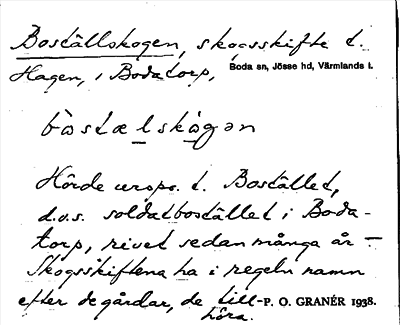 Boställskogen, skogsskifte t.
Hagen, i Bodatorp,
Boda sn, Jösse hd, Värmlands l.
bòstælskògən
Hörde urspr. t. Bostället,
d.v.s. soldatbostället i Boda-
torp, rivet sedan många år –
Skogsskiftena ha i regeln namn
efter de gårdar, de till-
höra.
P. O. GRANÉR 1938.